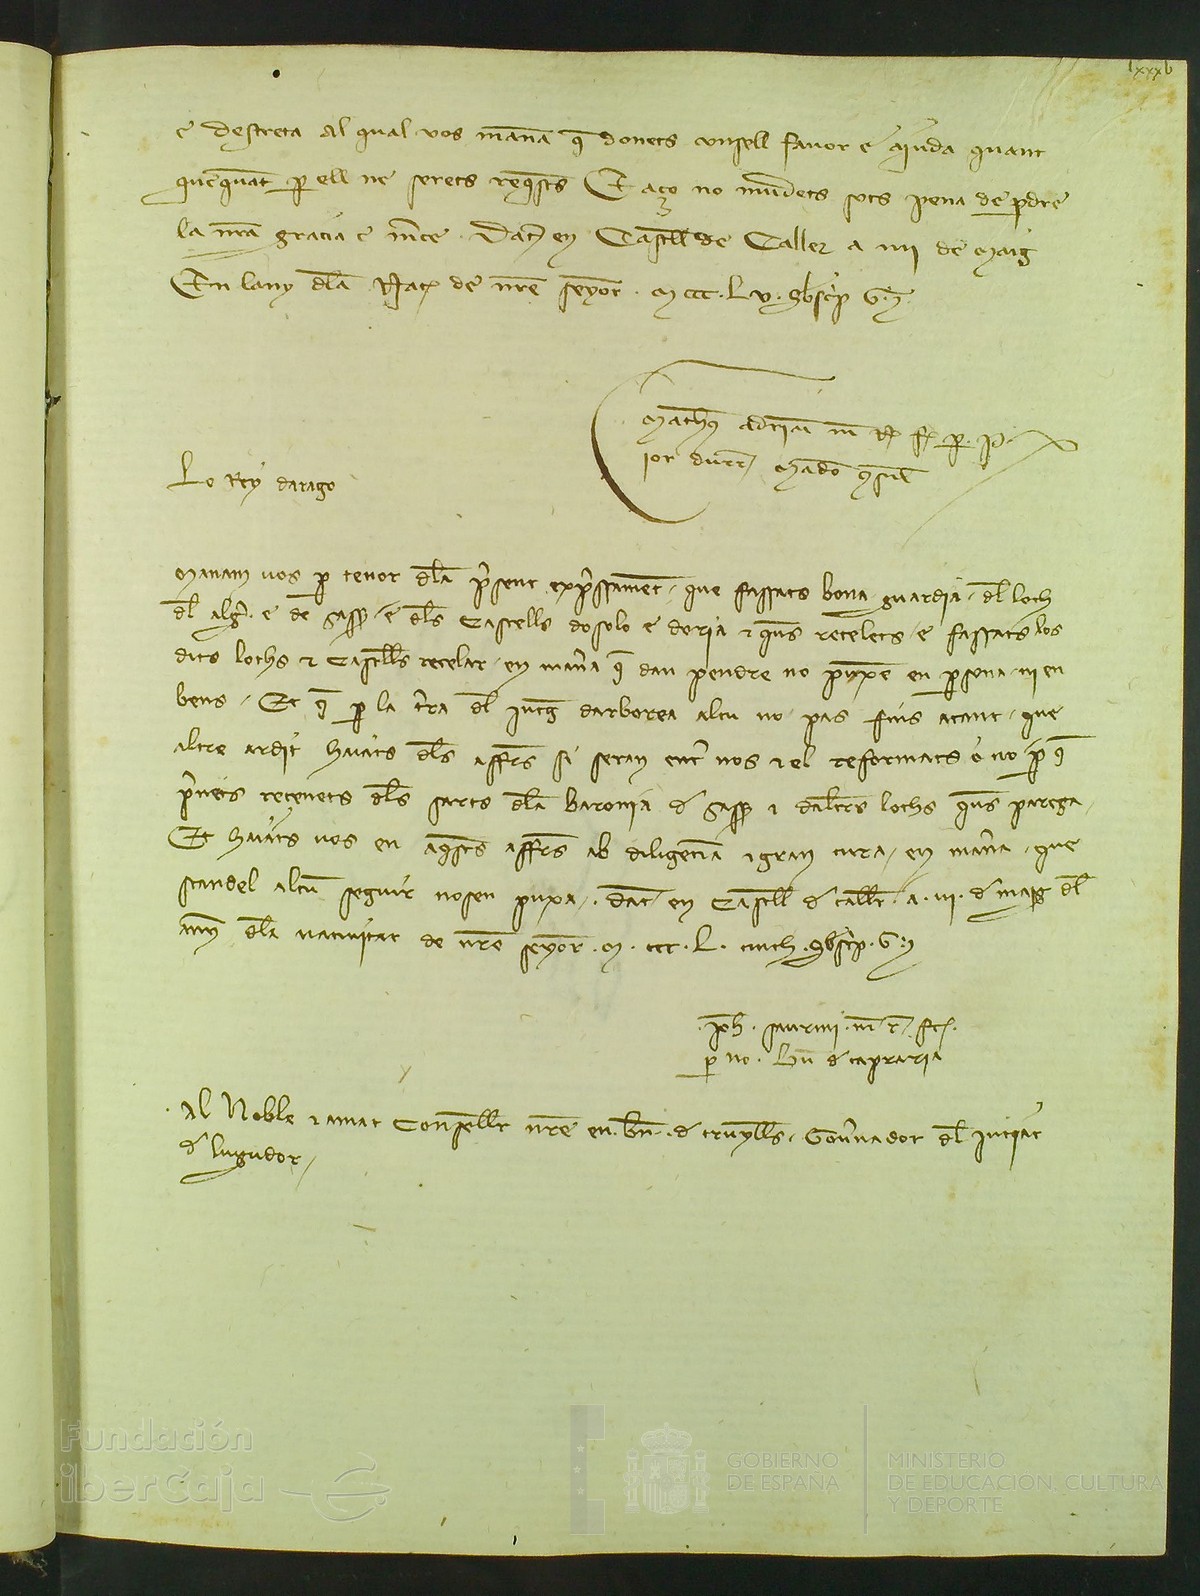 lxxxv
e destreta al qual vos manā q̄ donets consell favor e aiuda quant
quēquāt p̱ ell ne serets req̄sts Et aço no mudets sots pena de p̱dre
la nr̄a gracia e m̄ce. Dat̄ en Castell de Caller a iiii de Maig
En lany dl̄a Nat̄ de nr̄e seyor. M ccc. L v.
Lo Rey darago
Manam vos p̱ tenor dl̄a p̄sent exp̄ssament, que fassats bona guardia dl̄ loch
dl̄ alg̃. e de e dl̄s Castells dosolo e doria e recelets, e fassats los
dits lochs e Castells recelar, en man̄a q̄ dan pendre no puxē en p̱sona ni en
bens. Et q̄ p̱ la t̄ra dl̄ Jutg̃ darborea alcu no pas fins atant, que
altre ardit haiats dl̄s affr̄s si seran ent̄ nos e el reformats o no p̱ q̄
dl̄s sarts dl̄a baronia d̄ e daltr̄s lochs parega.
Et haiats vos en aq̄sts affr̄s ab diligencia e gran cura, en man̄a, que
scandel alcū seguir nosen puxa. Dat̄ en Castell d̄ Call̄r. a. vi. d̄ maig dl̄
any dl̄a nativitat de nr̄e seyor. M. ccc. L. cinch.
p̱ no. d̄ capraria
Al Noble e amat Consell̄r nr̄e en. bn̄. d̄ cruyll̄s, Gov̄nador dl̄ Jutjat
d̄ lugudor,
Fundación
iberCaja
GOBIERNO
DE ESPAÑA
MINISTERIO
DE EDUCACIÓN, CULTURA
Y DEPORTE